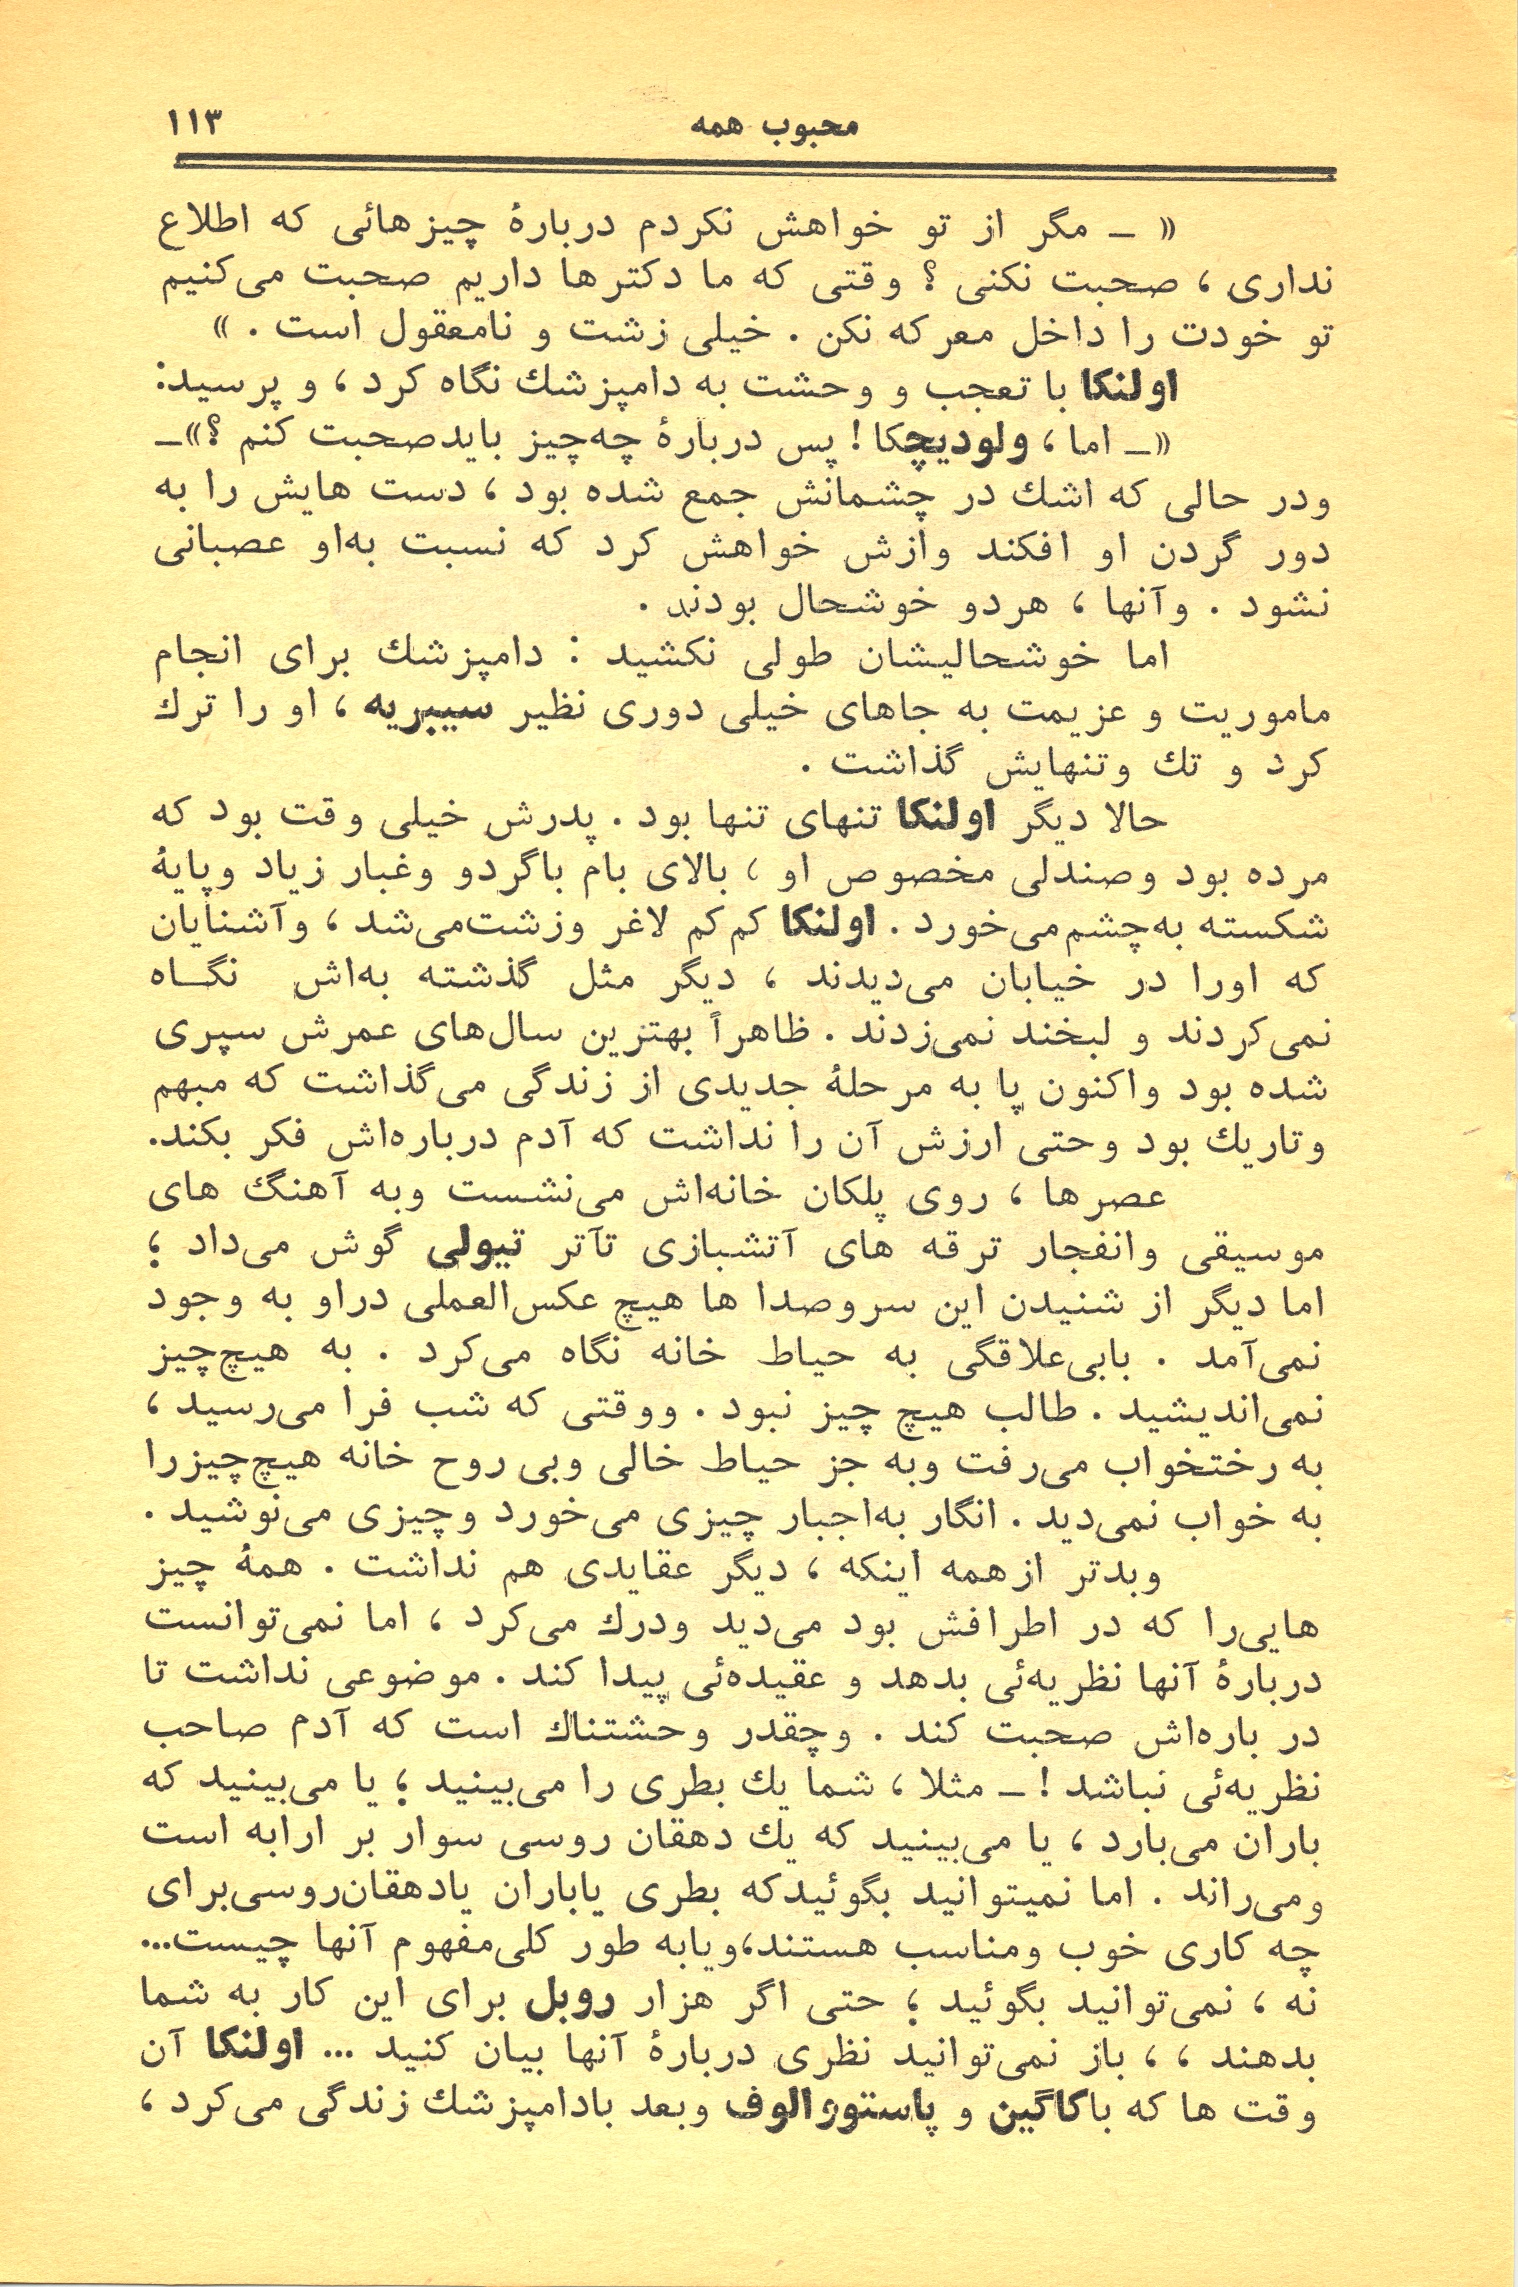 محبوب همه
۱۱۳
« ــ مگر از تو خواهش نکردم دربارهٔ چیزهائی که اطلاع
نداری ، صحبت نکنی ؟ وقتی که ما دکترها داریم صحبت می‌کنیم
تو خودت را داخل معرکه نکن . خیلی زشت و نامعقول است . »
اولنکا با تعجب و وحشت به دامپزشك نگاه کرد ، و پرسید:
«ــ اما ، ولودیچکا ! پس دربارهٔ چه‌چیز بایدصحبت کنم ؟»ــ
ودر حالی که اشك در چشمانش جمع شده بود ، دست هایش را به
دور گردن او افکند وازش خواهش کرد که نسبت به‌او عصبانی
نشود . وآنها ، هردو خوشحال بودند .
اما خوشحالیشان طولی نکشید : دامپزشك برای انجام
ماموریت و عزیمت به جاهای خیلی دوری نظیر سیبریه ، او را ترك
کرد و تك وتنهایش گذاشت .
حالا دیگر اولنکا تنهای تنها بود . پدرش خیلی وقت بود که
مرده بود وصندلی مخصوص او ، بالای بام باگردو وغبار زیاد وپایهٔ
شکسته به‌چشم‌می‌خورد . اولنکا کم‌کم لاغر وزشت‌می‌شد ، وآشنایان
که اورا در خیابان می‌دیدند ، دیگر مثل گذشته به‌اش نگـاه
نمی‌کردند و لبخند نمی‌زدند . ظاهراً بهترین سال‌های عمرش سپری
شده بود واکنون پا به مرحلهٔ جدیدی از زندگی می‌گذاشت که مبهم
وتاریك بود وحتی ارزش آن را نداشت که آدم درباره‌اش فکر بکند.
عصرها ، روی پلکان خانه‌اش می‌نشست وبه آهنگ های
موسیقی وانفجار ترقه های آتشبازی تآتر تیولی گوش می‌داد ؛
اما دیگر از شنیدن این سروصدا ها هیچ عکس‌العملی دراو به وجود
نمی‌آمد . بابی‌علاقگی به حیاط خانه نگاه می‌کرد . به هیچ‌چیز
نمی‌اندیشید . طالب هیچ چیز نبود . ووقتی که شب فرا می‌رسید ،
به رختخواب می‌رفت وبه جز حیاط خالی وبی روح خانه هیچ‌چیزرا
به خواب نمی‌دید . انگار به‌اجبار چیزی می‌خورد وچیزی می‌نوشید .
وبدتر ازهمه اینکه ، دیگر عقایدی هم نداشت . همهٔ چیز
هایی‌را که در اطرافش بود می‌دید ودرك می‌کرد ، اما نمی‌توانست
دربارهٔ آنها نظریه‌ئی بدهد و عقیده‌ئی پیدا کند . موضوعی نداشت تا
در باره‌اش صحبت کند . وچقدر وحشتناك است که آدم صاحب
نظریه‌ئی نباشد ! ــ مثلا ، شما یك بطری را می‌بینید ؛ یا می‌بینید که
باران می‌بارد ، یا می‌بینید که یك دهقان روسی سوار بر ارابه است
ومی‌راند . اما نمیتوانید بگوئیدکه بطری یاباران یادهقان‌روسی‌برای
چه کاری خوب ومناسب هستند،ویابه طور کلی‌مفهوم آنها چیست...
نه ، نمی‌توانید بگوئید ؛ حتی اگر هزار روبل برای این کار به شما
بدهند ، ، باز نمی‌توانید نظری دربارهٔ آنها بیان کنید ... اولنکا آن
وقت ها که باکاگین و پاستورالوف وبعد بادامپزشك زندگی می‌کرد ،